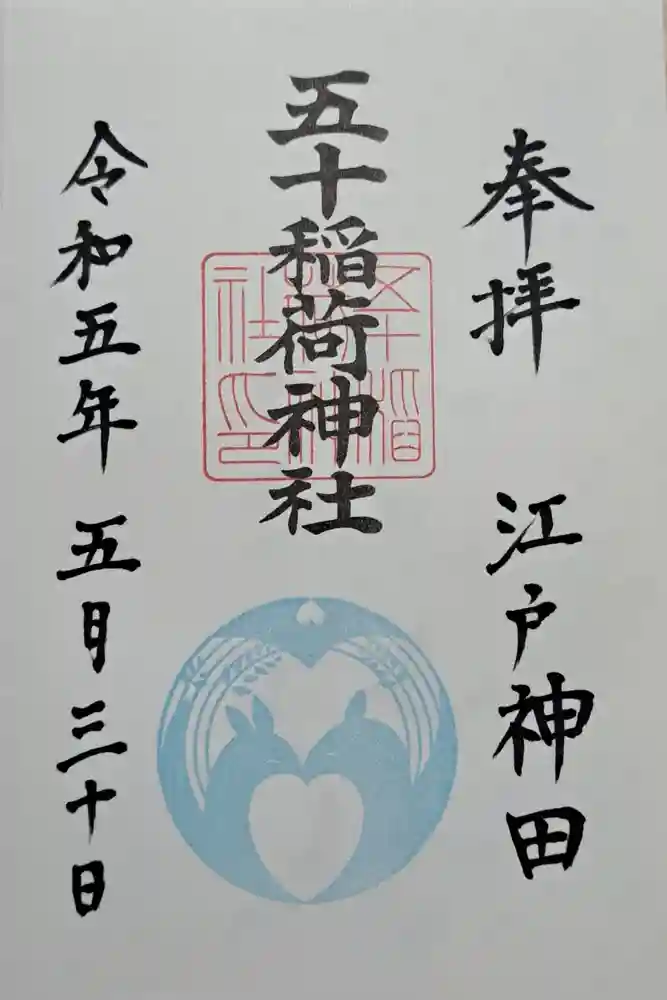 奉拝 江戸神田
五十稲荷神社
五十稲
荷神
社印
令和五年 五月三十日